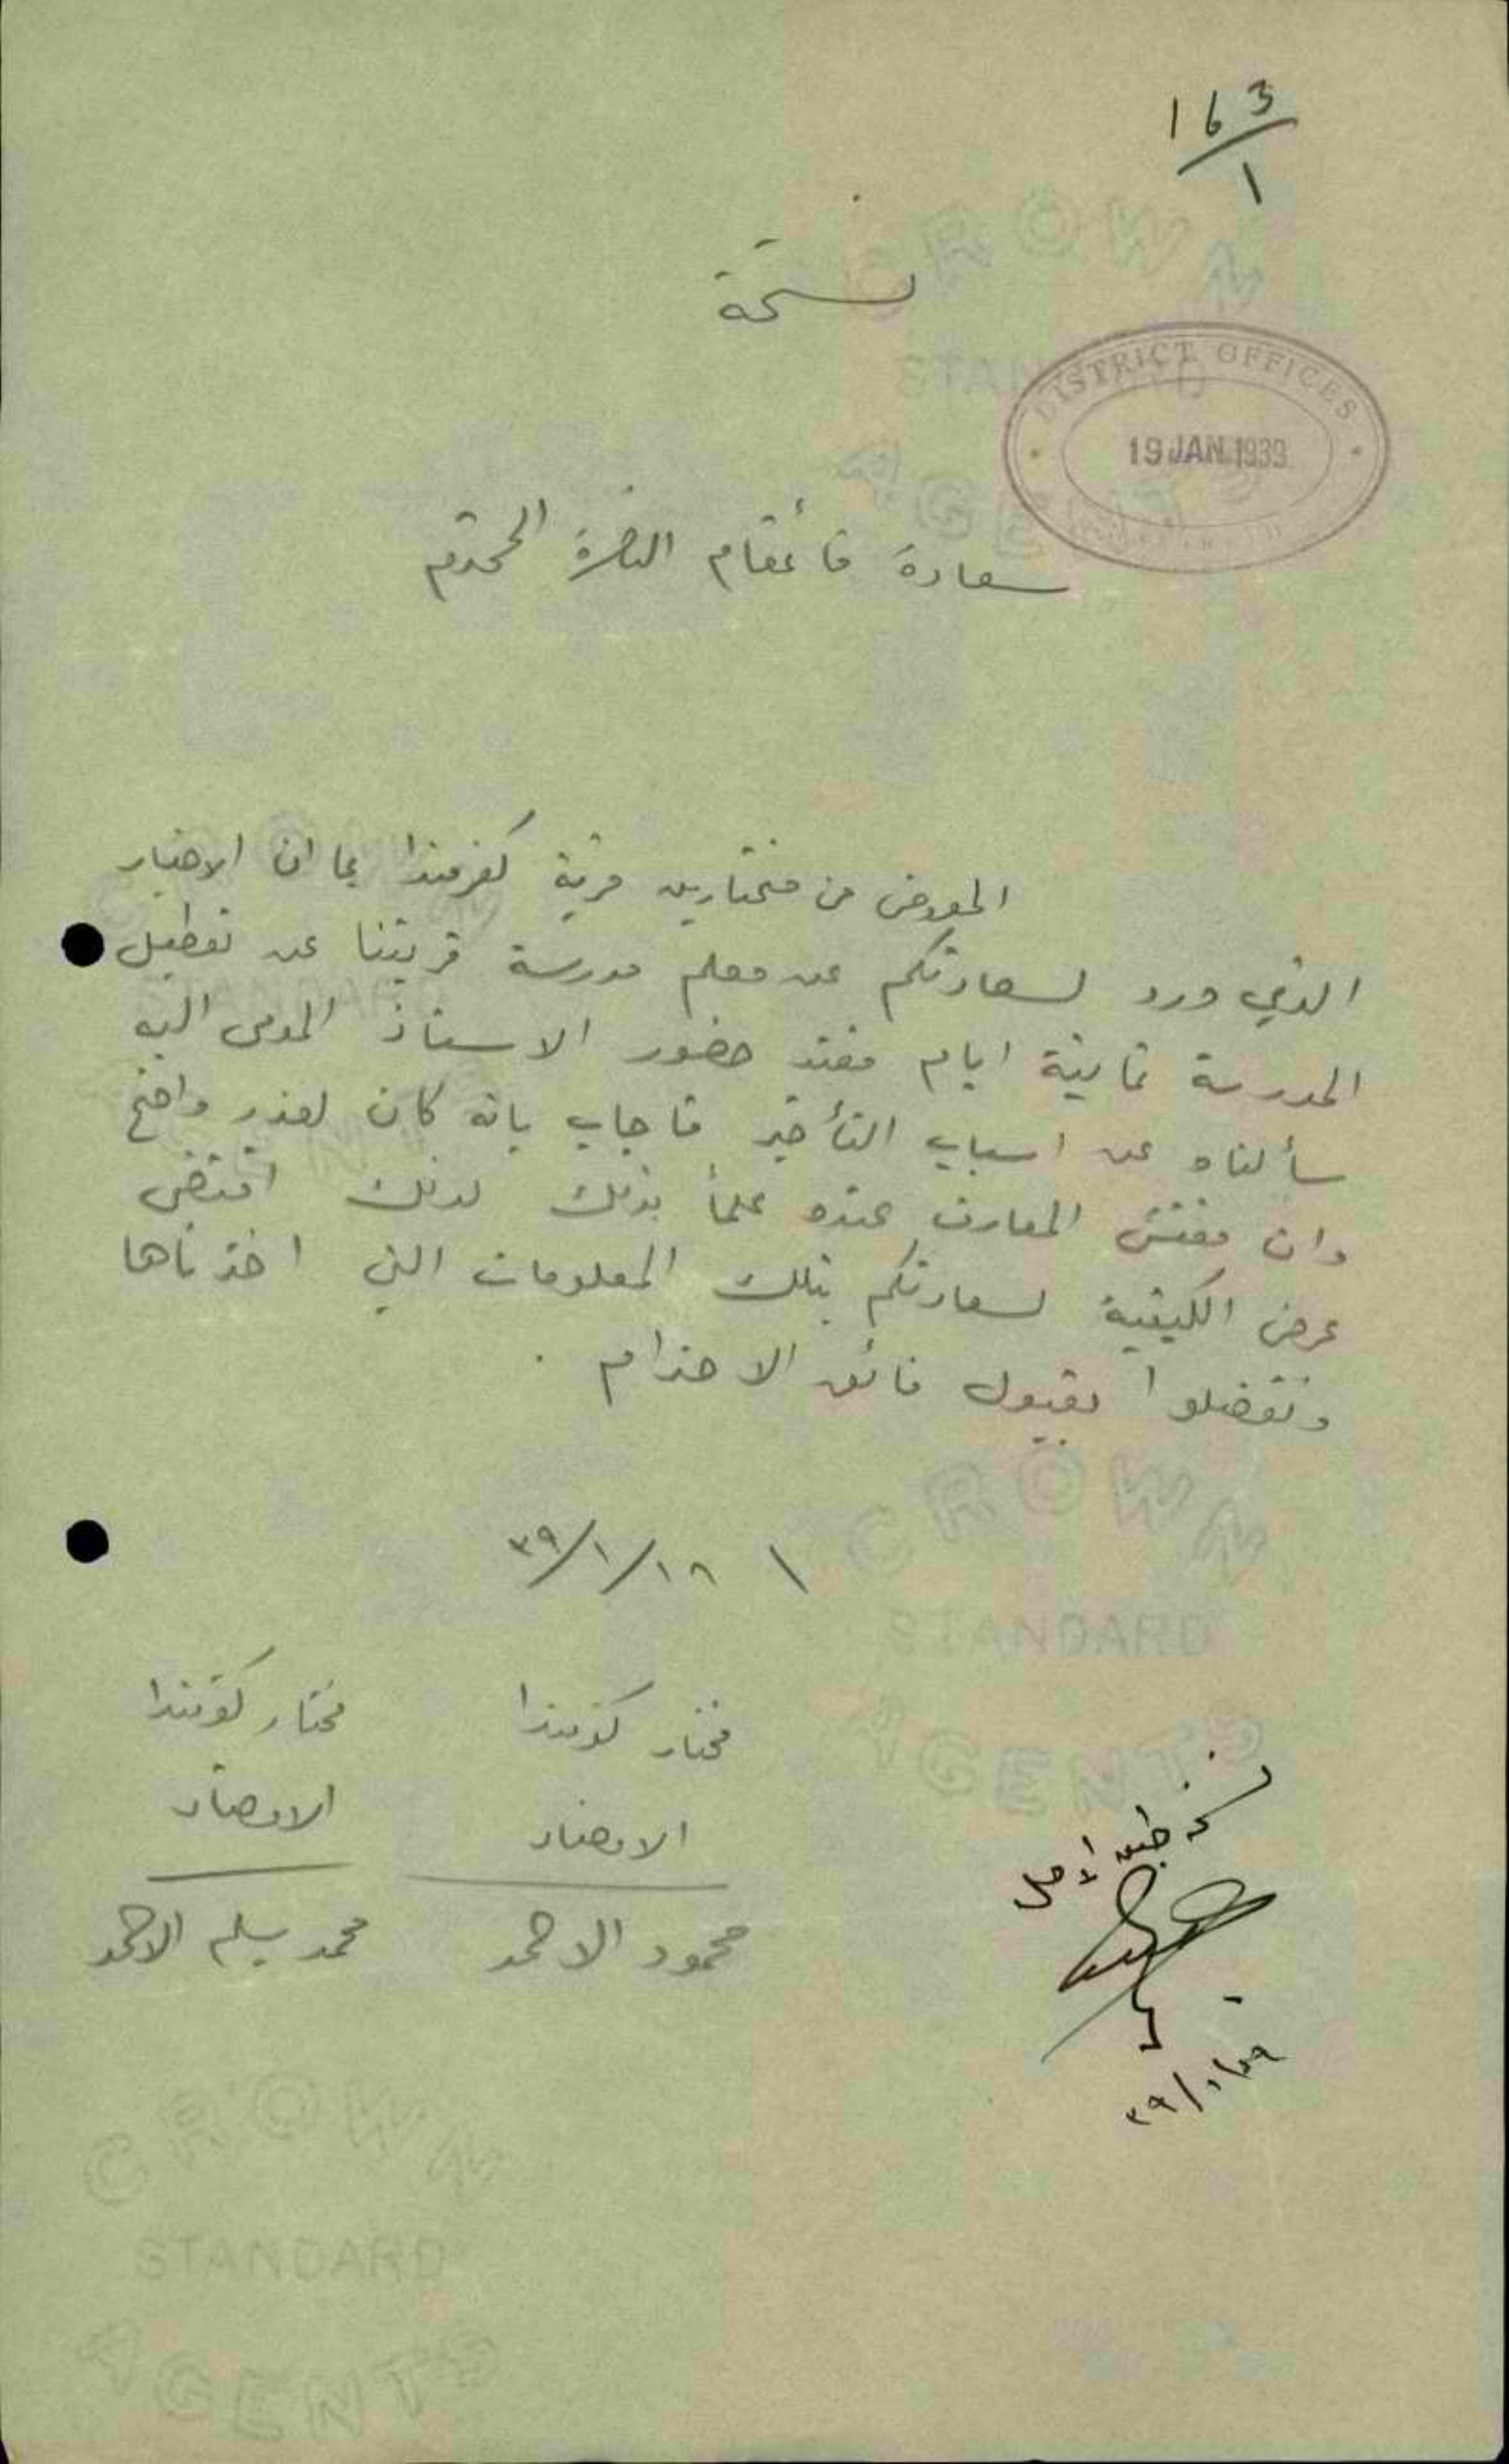 163/1
نسخة
DISTRICT OFFICES
19 JAN 1939
سعادة قائمقام الناصرة المحترم
المعروض من مختارين قرية كفرمندا بما ان الاخبار
الذي ورد لسعادتكم عن معلم مدرسة قريتنا عن تعطيل
المدرسة ثمانية ايام فعند حضور الاستاذ المومى اليه
سألناه عن اسباب التأخير فاجاب بانه كان لعذر واضح
وان مفتش المعارف عنده علماً بذلك لذلك اقتضى
عرض الكيفية لسعادتكم بتلك المعلومات التي اخذناها
وتفضلوا بقبول فائق الاحترام .
١٨/١/٣٩
مختار كفرمندا مختار كفرمندا
الامضاء الامضاء
محمود الاحمد محمد سليم الاحمد
نسخة طبق الاصل
CROWN
STANDARD
AGENTS
CROWN
STANDARD
AGENTS
CROWN
STANDARD
AGENTS